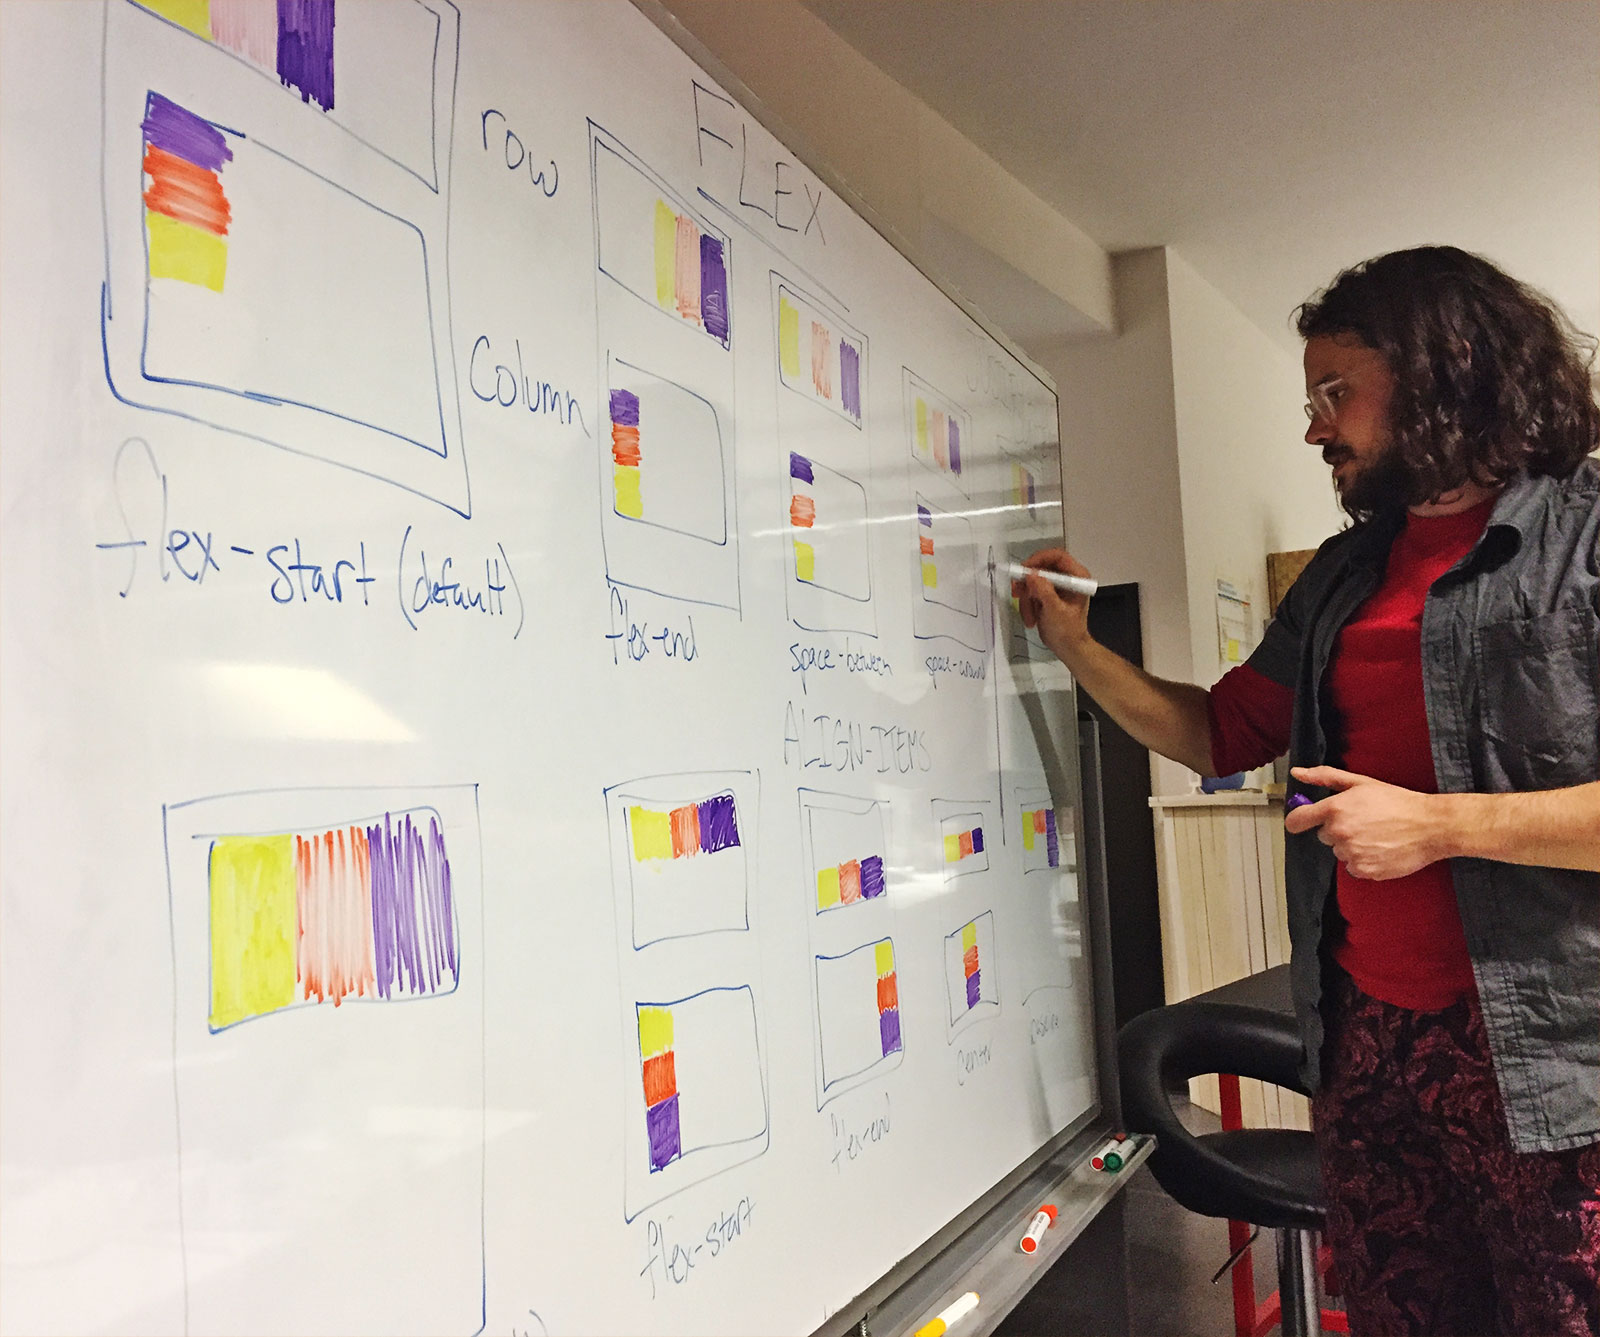 FLEX
row
Column
flex-start (default)
flex-end
space-between
space-around
ALIGN-ITEMS
flex-start
flex-end
center